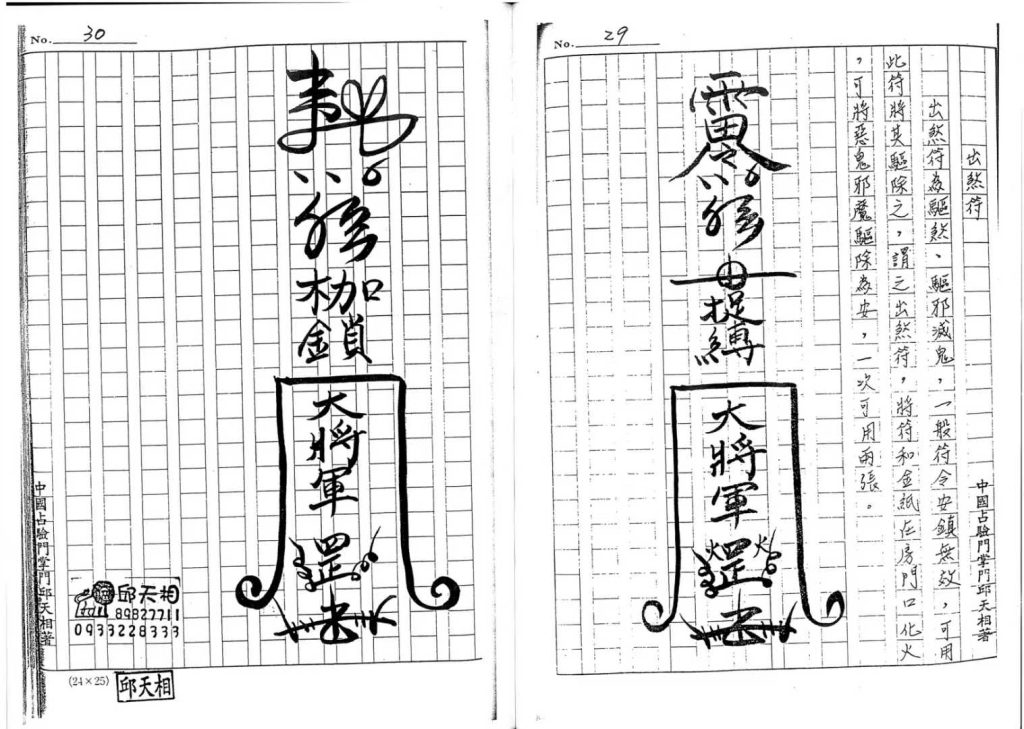 No. 29
出煞符
出煞符為驅煞、驅邪滅鬼，一般符令安鎮無效，可用
此符將其驅除之，謂之出煞符，將符和金紙在房門口化火
，可將惡鬼邪魔驅除為安，一次可用兩張。
捉縛
大將軍
罡
中國占驗門掌門邱天相著
No. 30
枷鎖
大將軍
罡
中國占驗門掌門邱天相著
邱天相
89827711
0933228333
(24×25)
邱天相